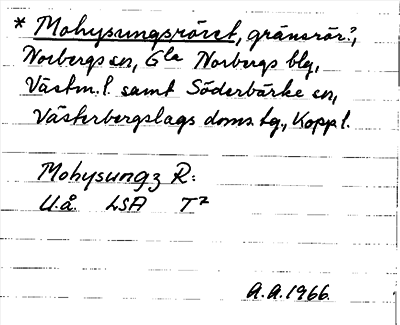 * Mohysungsröret, gränsrör?,
Norbergs sn, Gla Norbergs blg,
Västm. l. samt Söderbärke sn,
Västerbergslags doms.tg., Kopp l.
Mohysungz R:
U.å. LSA T²
A.A. 1966.